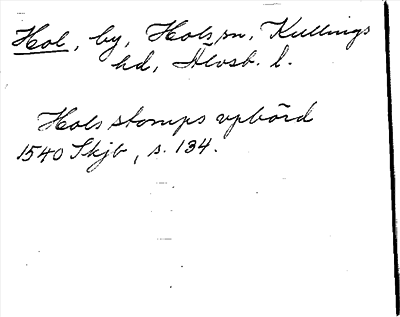 Hol, by, Hols sn, Kullings
hd, Älvsb. l.
Hols stomps vpbörd
1540 Skjb, s. 134.